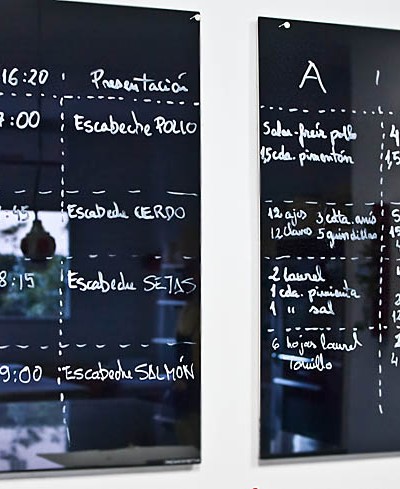 16:20 Presentación
7:00 Escabeche POLLO
:45 Escabeche CERDO
8:15 Escabeche SETAS
9:00 Escabeche SALMÓN
A
Salar-freír pollo
1,5 cda. pimentón
12 ajos 3 cdta. anís
12 clavos 5 guindillas
2 laurel
1 cda. pimienta
1 " sal
6 hojas laurel
Tomillo